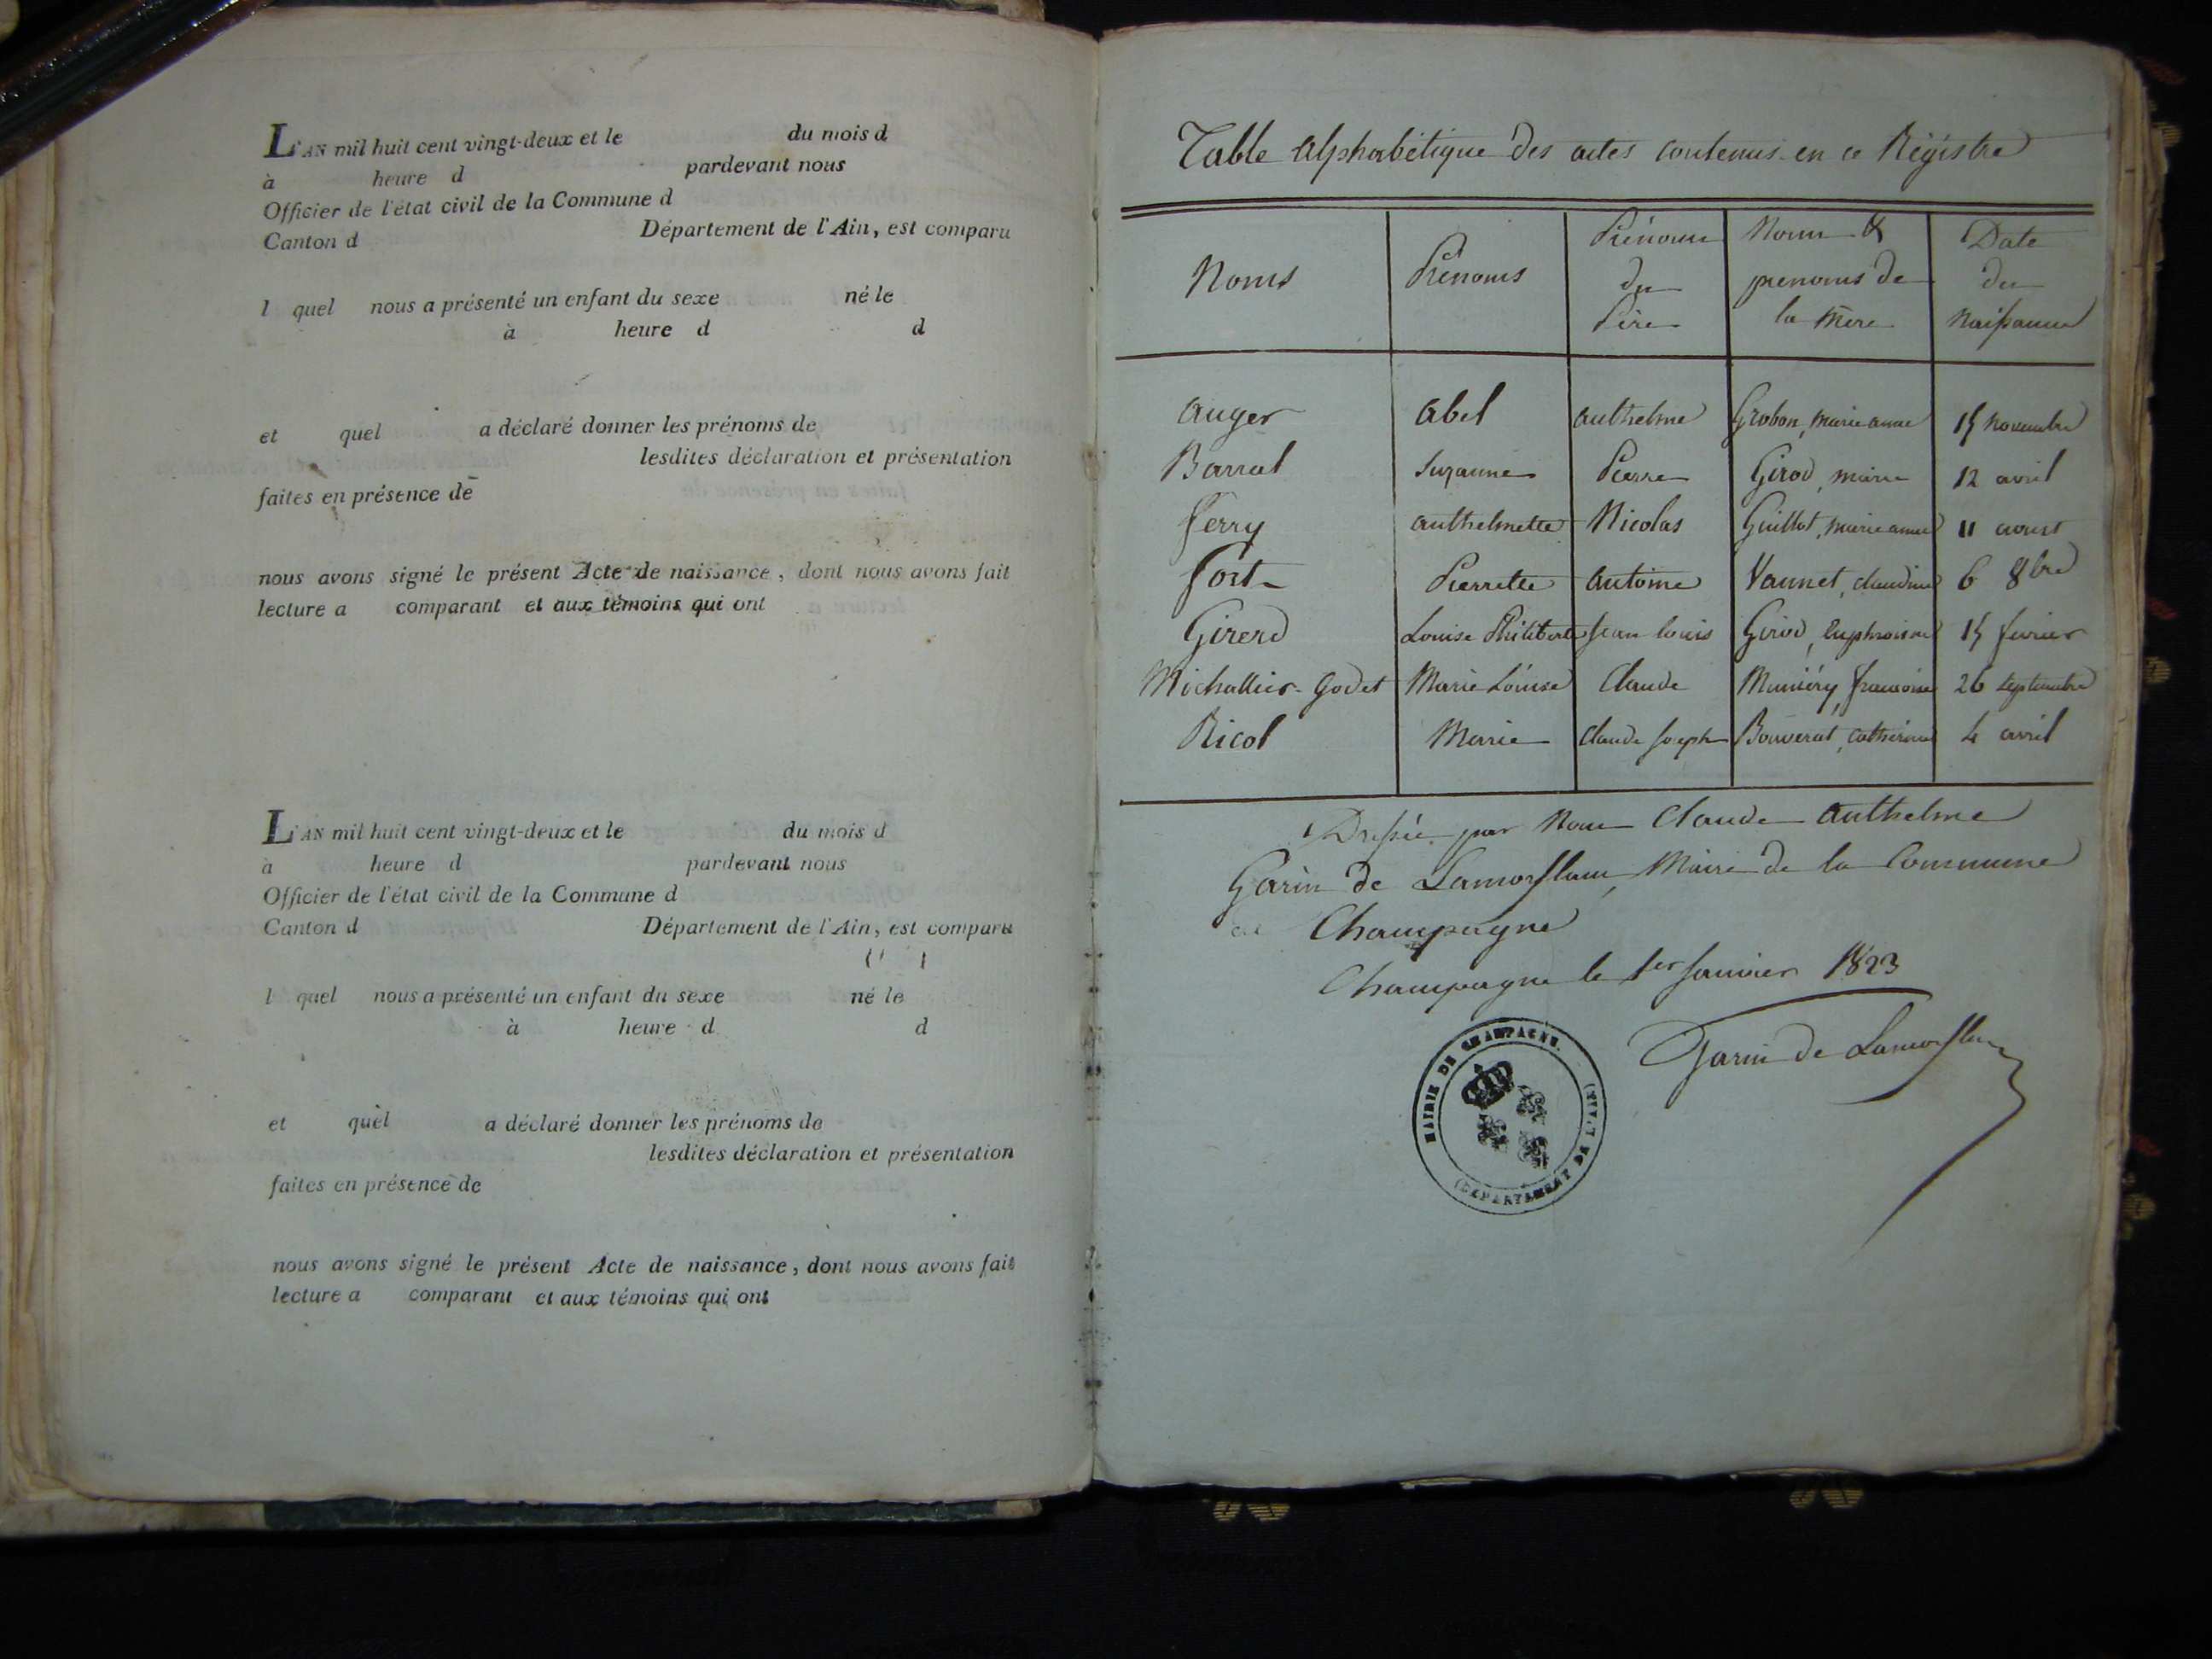 L'AN mil huit cent vingt-deux et le du mois d
à heure d pardevant nous
Officier de l'état civil de la Commune d
Canton d Département de l'Ain, est comparu
l quel nous a présenté un enfant du sexe né le
à heure d d
et quel a déclaré donner les prénoms de
lesdites déclaration et présentation
faites en présence de
nous avons signé le présent Acte de naissance, dont nous avons fait
lecture a comparant et aux témoins qui ont
L'AN mil huit cent vingt-deux et le du mois d
à heure d pardevant nous
Officier de l'état civil de la Commune d
Canton d Département de l'Ain, est comparu
l quel nous a présenté un enfant du sexe né le
à heure d d
et quel a déclaré donner les prénoms de
lesdites déclaration et présentation
faites en présence de
nous avons signé le présent Acte de naissance, dont nous avons fait
lecture a comparant et aux témoins qui ont
Table Alphabétique des actes contenus en ce Régistre
Noms Prénoms Prénoms du Père Noms & prenoms de la Mère Date du Naissance
Auger Abel Anthelme Grobon, marie anne 15 novembre
Barral Suzanne Pierre Girod, marie 12 avril
ferry anthelmette Nicolas Guillot, marie anne 11 aoust
fort Pierrette antoine Vannet, claudine 6 8bre
Girerd Louise Philiberte Jean louis Girod, Euphroisine 15 fevrier
Michallier-Godet Marie Louise Claude Muniéry, francoise 26 septembre
Ricol Marie Claude Joseph Bouverat, catherine 4 avril
Dressée par Nous Claude Anthelme
Garin de Lamorflan, Maire de la Commune
de Champagne
Champagne le 1er Janvier 1823
Garin de Lamorflan
MAIRIE DE CHAMPAGNE.
(DÉPARTEMENT DE L'AIN)